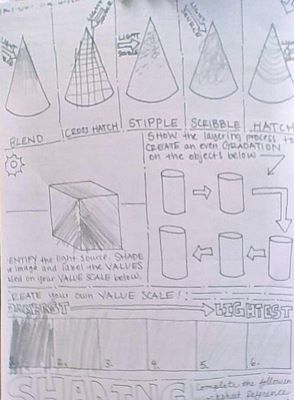 LIGHT
BLEND
CROSS HATCH
STIPPLE
SCRIBBLE
HATCH
SHOW the layering process to
CREATE an even GRADATION
on the objects below
the light source. SHADE
image and label the VALUES
on your VALUE SCALE below.
your own VALUE SCALE!
LIGHTEST
2.
3.
4.
5.
6.
SHADING
Complete the following
Reference